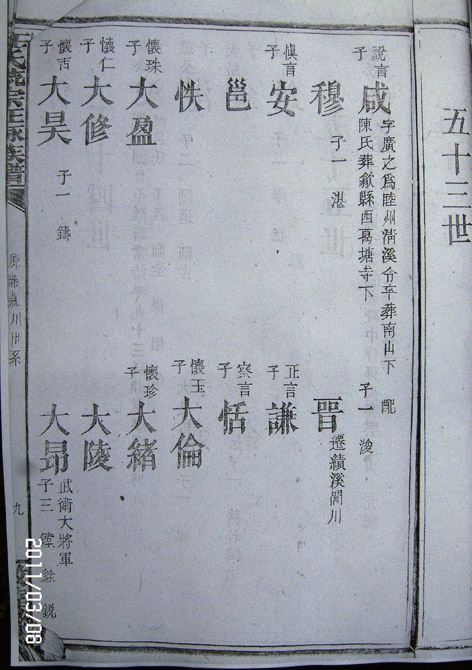 五十三世
說言子 咸 字廣之爲睦州清溪令卒葬南山下 配
陳氏葬歙縣西葛塘寺下 子一 浚
穆 子一 湛
晋 遷績溪闇川
愼言子 安
正言子 謙
邕
察言子 恬
怢
懷玉子 大倫
懷珠子 大盈
懷珍子 大緒
懷仁子 大修
大陵
懷吉子 大昊 子一 鑄
大昻 武衛大將軍
子三 鏜 銓 鋭
九
2011/03/08